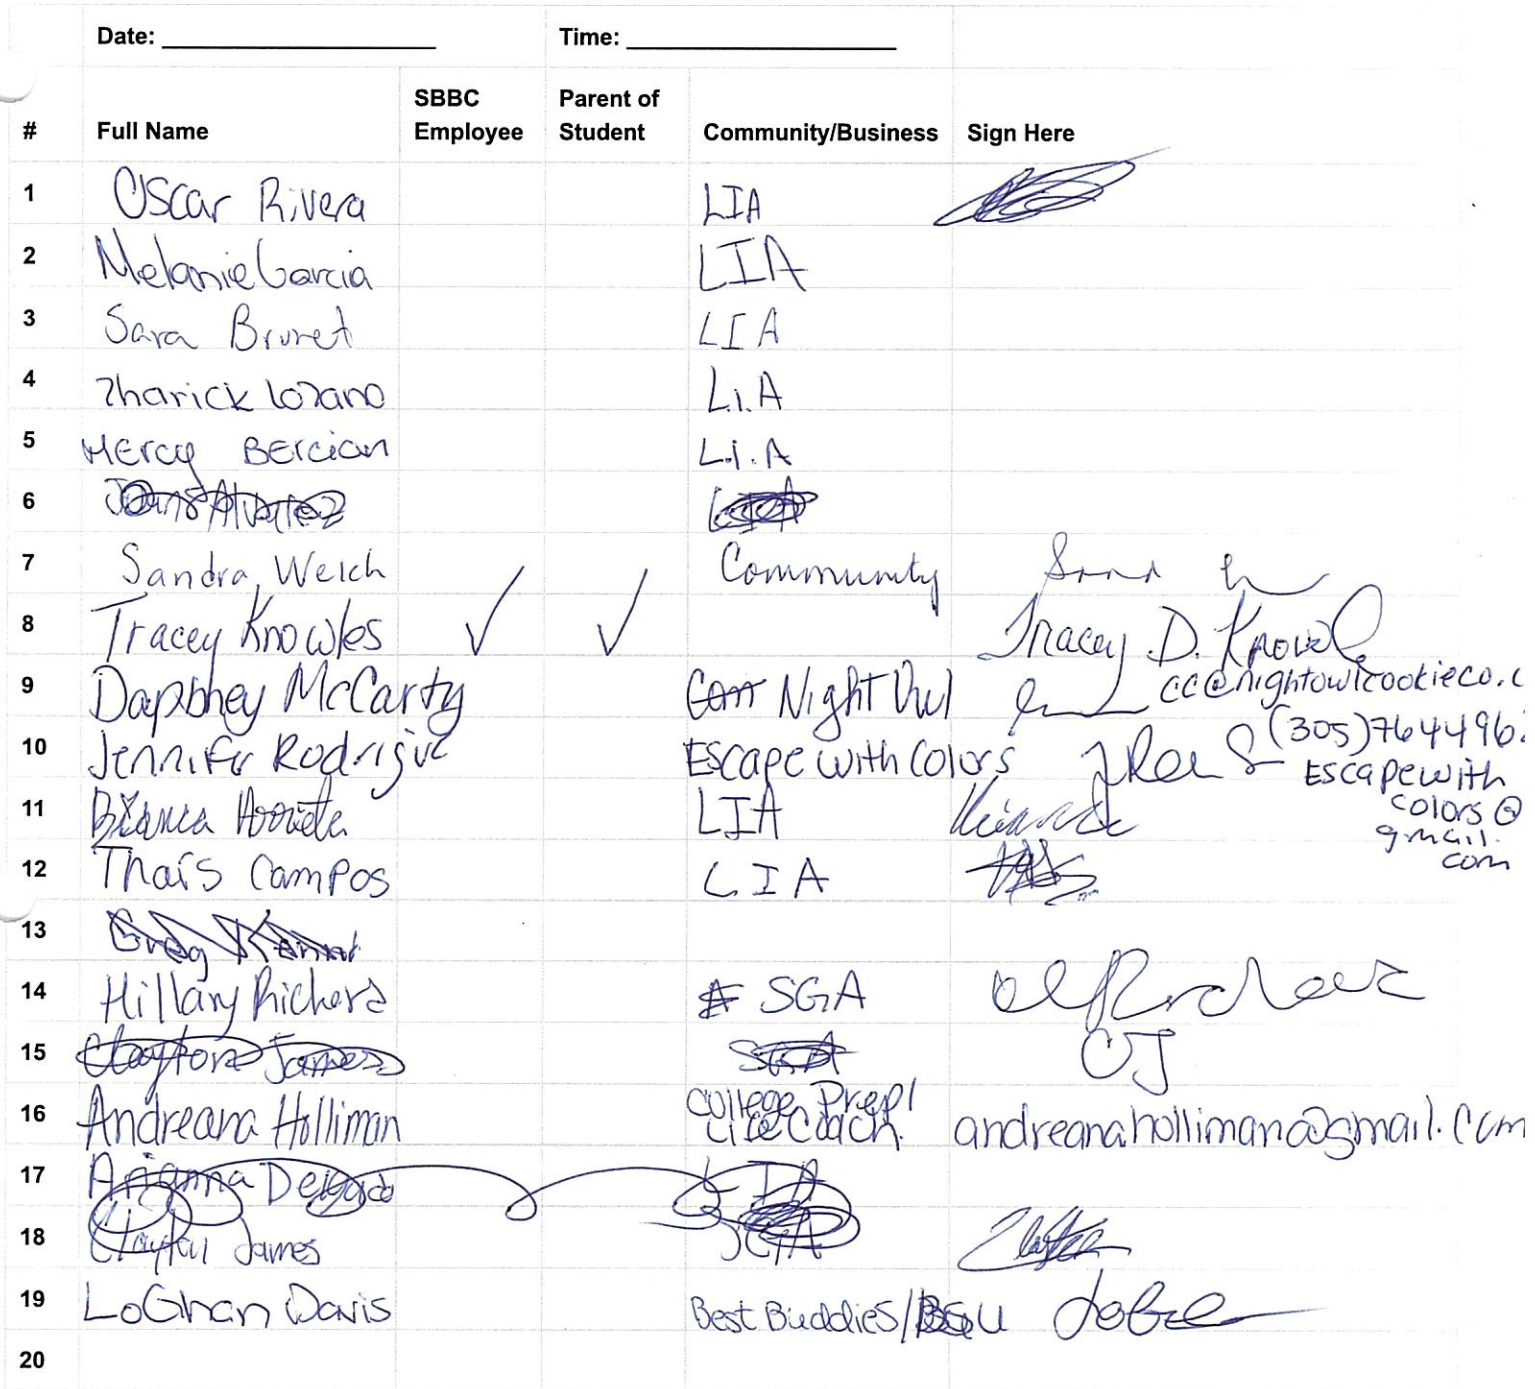 Date: Time:
# Full Name SBBC Employee Parent of Student Community/Business Sign Here
1 Oscar Rivera LIA
2 Melanie Garcia LIA
3 Sara Brunet LIA
4 Zharick Lozano L.I.A
5 Mercy Bercian L.I.A
6
7 Sandra Welch Community
8 Tracey Knowles ✓ ✓ Tracey D. Knowles
9 Dapbhey McCarty Night Owl cc@nightowlcookieco.c
10 Jennifer Rodrigue Escape with Colors (305)7644962
Escapewith
colors@
gmail.
com
11 Bianca LIA
12 Thaís Campos LIA
13
14 Hillary Richers SGA
15 Clayton James SGA CJ
16 Andreana Holliman College Prep/
Life Coach. andreanaholliman@gmail.com
17 Arianna Delgado LIA
18 Clayton James SGA
19 LoGhan Davis Best Buddies/BSU
20